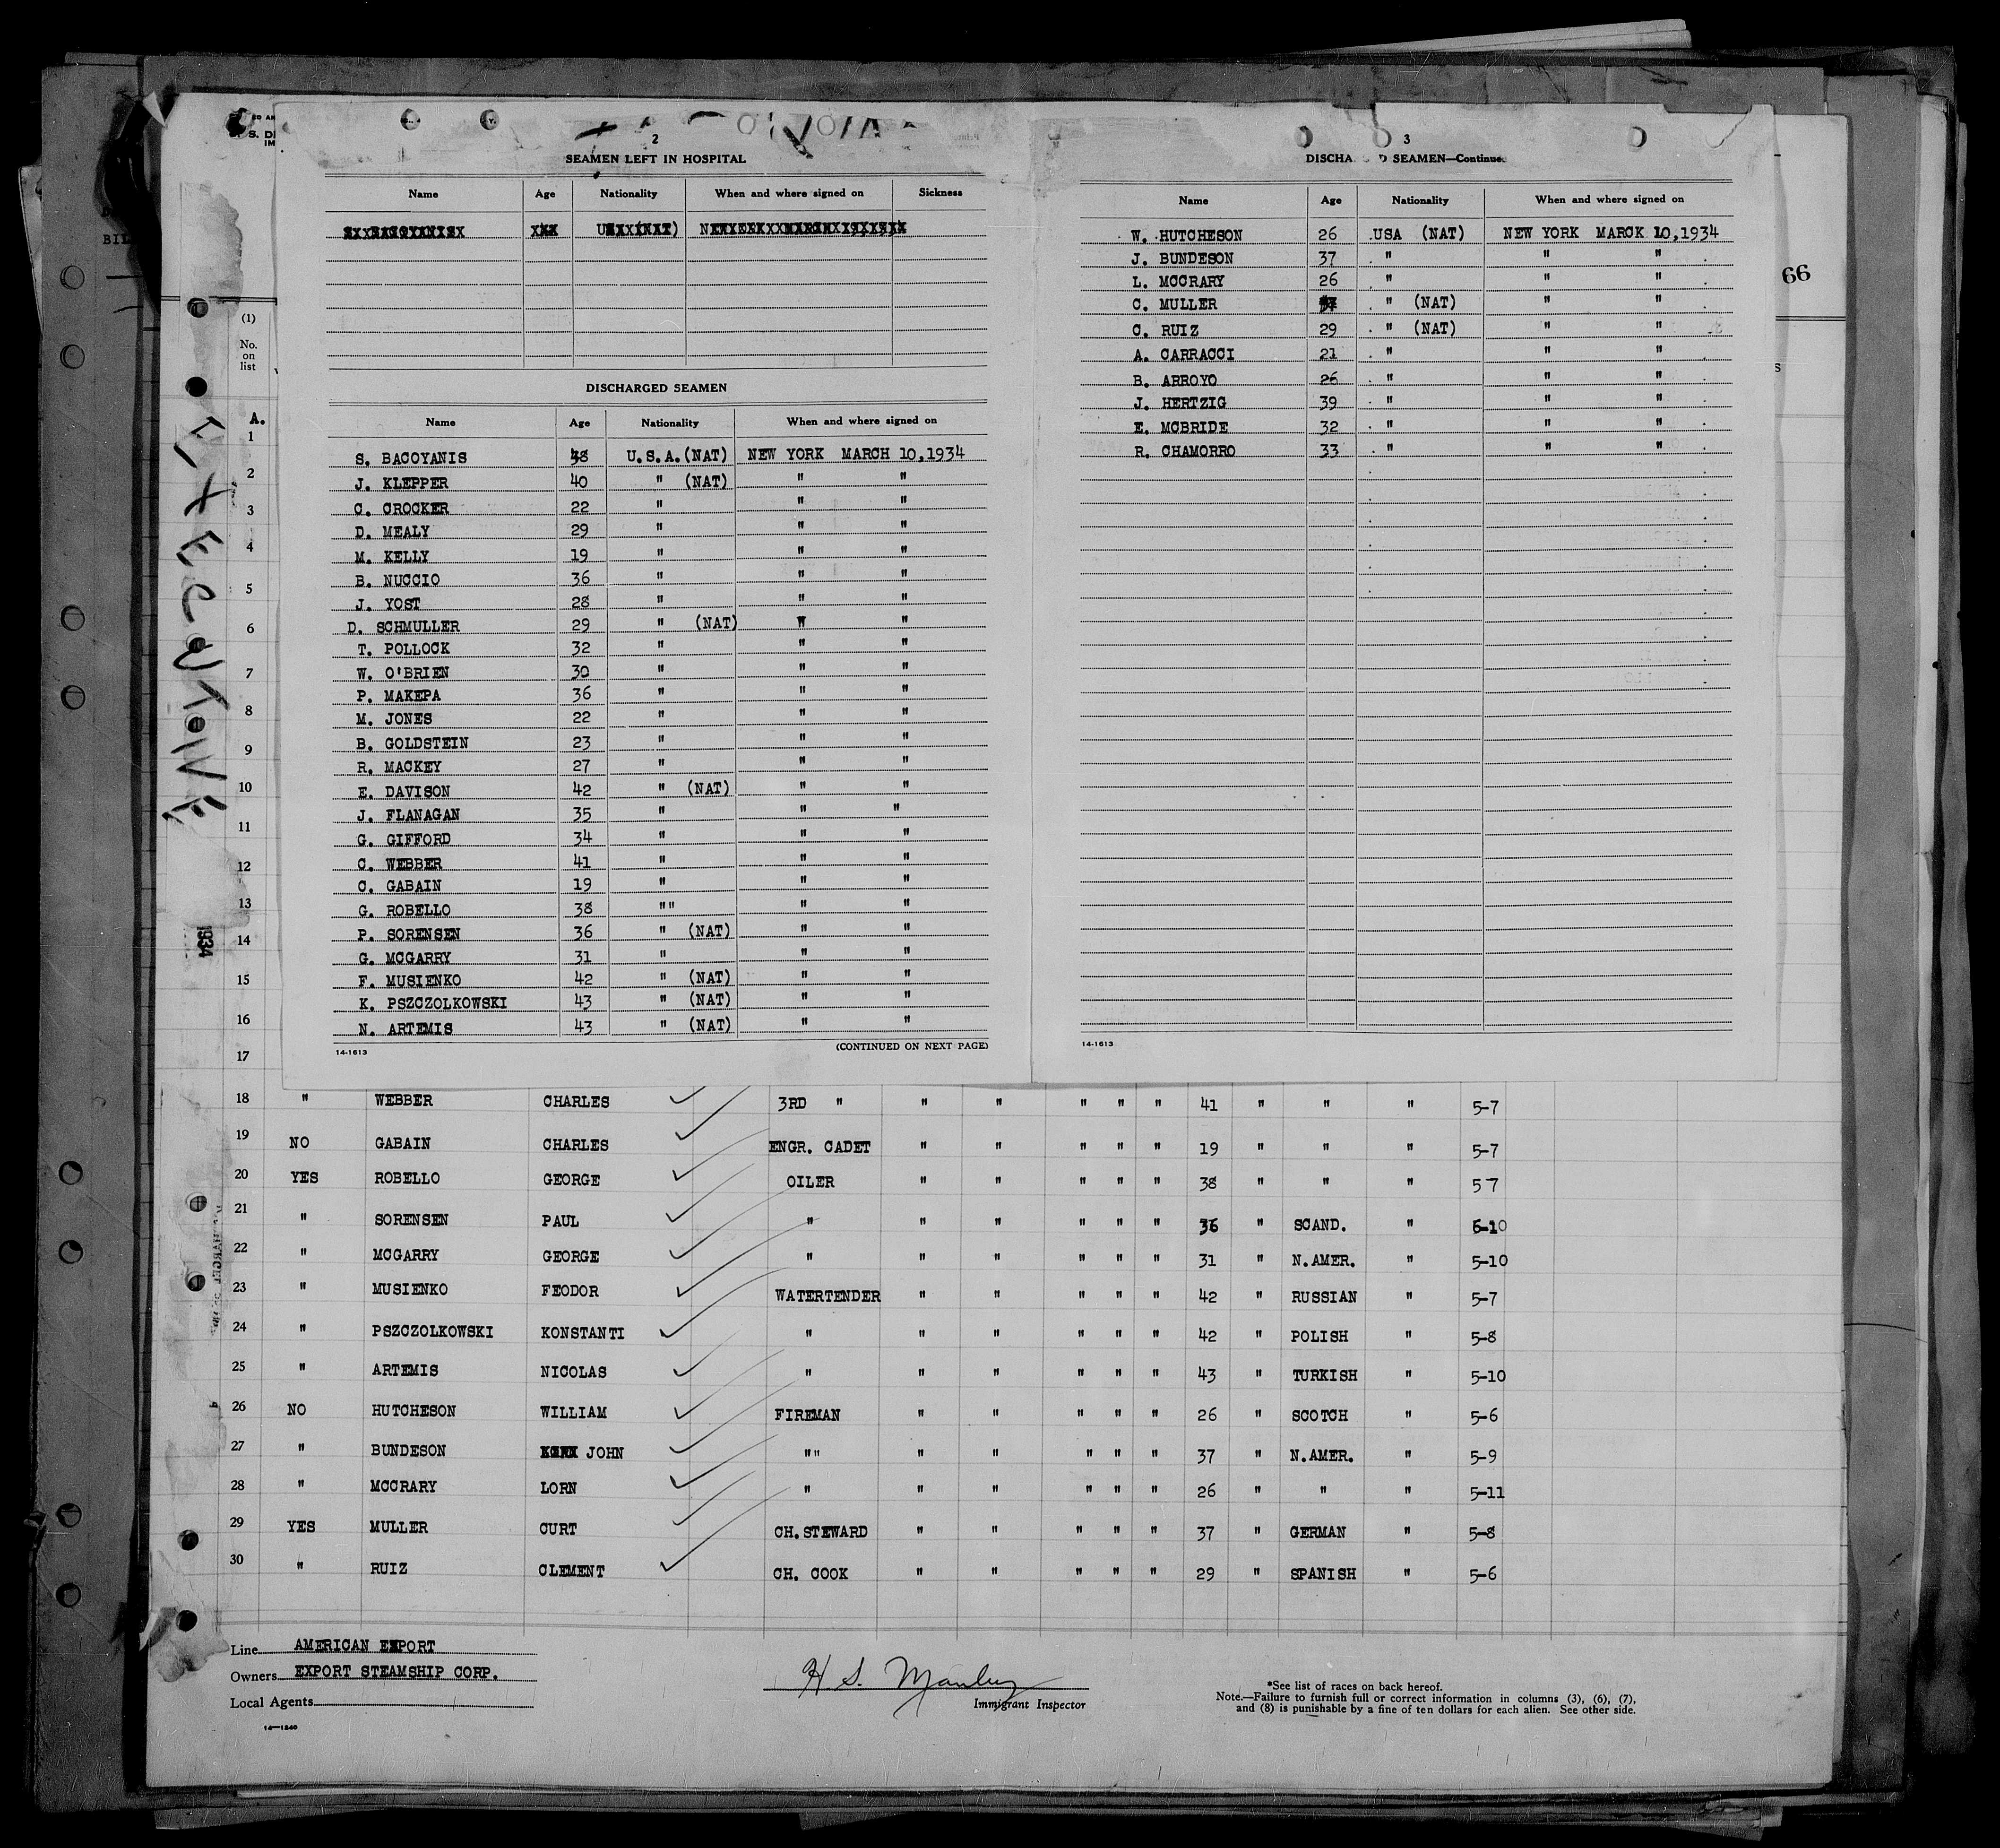 2
SEAMEN LEFT IN HOSPITAL
Name Age Nationality When and where signed on Sickness
DISCHARGED SEAMEN
Name Age Nationality When and where signed on
S. BACOYANIS 38 U.S.A.(NAT) NEW YORK MARCH 10,1934
J. KLEPPER 40 " (NAT) " "
C. CROCKER 22 " " "
D. MEALY 29 " " "
M. KELLY 19 " " "
B. NUCCIO 36 " " "
J. YOST 28 " " "
D. SCHMULLER 29 " (NAT) " "
T. POLLOCK 32 " " "
W. O'BRIEN 30 " " "
P. MAKEPA 36 " " "
M. JONES 22 " " "
B. GOLDSTEIN 23 " " "
R. MACKEY 27 " " "
E. DAVISON 42 " (NAT) " "
J. FLANAGAN 35 " " "
G. GIFFORD 34 " " "
C. WEBBER 41 " " "
C. GABAIN 19 " " "
G. ROBELLO 38 "" " "
P. SORENSEN 36 " (NAT) " "
G. MCGARRY 31 " " "
F. MUSIENKO 42 " (NAT) " "
K. PSZCZOLKOWSKI 43 " (NAT) " "
N. ARTEMIS 43 " (NAT) " "
14-1613 (CONTINUED ON NEXT PAGE)
3
DISCHA D SEAMEN—Continue
Name Age Nationality When and where signed on
W. HUTCHESON 26 USA (NAT) NEW YORK MARCK 10,1934
J. BUNDESON 37 " " "
L. MCCRARY 26 " " "
C. MULLER " (NAT) " "
C. RUIZ 29 " (NAT) " "
A. CARRACCI 21 " " "
B. ARROYO 26 " " "
J. HERTZIG 39 " " "
E. MCBRIDE 32 " " "
R. CHAMORRO 33 " " "
14-1613
66
(1)
No.
on
list
A.
1
2
3
4
5
6
7
8
9
10
11
12
13
14
15
16
17
1934
18 " WEBBER CHARLES 3RD " " " " " " 41 " " " 5-7
19 NO GABAIN CHARLES ENGR. CADET " " " " " 19 " " " 5-7
20 YES ROBELLO GEORGE OILER " " " " " 38 " " " 57
21 " SORENSEN PAUL " " " " " " 36 " SCAND. " 5-10
22 " MCGARRY GEORGE " " " " " " 31 " N.AMER. " 5-10
23 " MUSIENKO FEODOR WATERTENDER " " " " " 42 " RUSSIAN " 5-7
24 " PSZCZOLKOWSKI KONSTANTI " " " " " " 42 " POLISH " 5-8
25 " ARTEMIS NICOLAS " " " " " " 43 " TURKISH " 5-10
26 NO HUTCHESON WILLIAM FIREMAN " " " " " 26 " SCOTCH " 5-6
27 " BUNDESON JOHN "" " " " " " 37 " N.AMER. " 5-9
28 " MCCRARY LORN " " " " " " 26 " " " 5-11
29 YES MULLER CURT CH.STEWARD " " " " " 37 " GERMAN " 5-8
30 " RUIZ CLEMENT CH. COOK " " " " " 29 " SPANISH " 5-6
Line AMERICAN EXPORT
Owners EXPORT STEAMSHIP CORP.
Local Agents
14—1240
H. S. Manley
Immigrant Inspector
*See list of races on back hereof.
Note.—Failure to furnish full or correct information in columns (3), (6), (7),
and (8) is punishable by a fine of ten dollars for each alien. See other side.